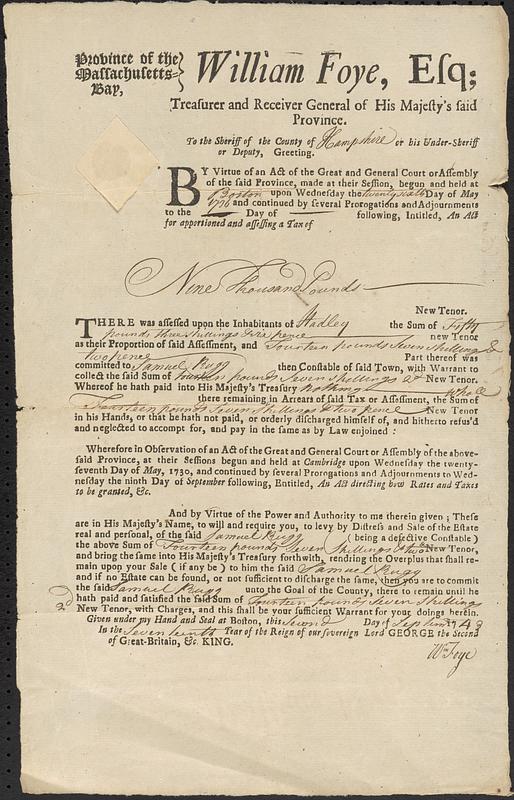 Province of the
Massachusetts-
Bay,
William Foye, Esq;
Treasurer and Receiver General of His Majesty's said
Province.
To the Sheriff of the County of Hampshire or his Under-Sheriff
or Deputy, Greeting.
BY Virtue of an Act of the Great and General Court or Assembly
of the said Province, made at their Session, begun and held at
Boston upon Wednesday the twenty sixth Day of May
and continued by several Prorogations and Adjournments
to the Day of following, Intitled, An Act
for apportioned and assessing a Tax of
Nine Thousand Pounds
New Tenor.
THERE was assessed upon the Inhabitants of Hadley the Sum of Fifty
pounds three shillings pence new Tenor
as their Proportion of said Assessment, and Fourteen pounds Seven shillings &
two pence Part thereof was
committed to Samuel Rugg then Constable of said Town, with Warrant to
collect the said Sum of fourteen pounds Seven shillings & New Tenor.
Whereof he hath paid into His Majesty's Treasury nothing whole
there remaining in Arrears of said Tax or Assessment, the Sum of
Fourteen pounds Seven Shillings & two pence New Tenor
in his Hands, or that he hath not paid, or orderly discharged himself of, and hitherto refus'd
and neglected to account for, and pay in the same as by Law enjoined :
Wherefore in Observation of an Act of the Great and General Court or Assembly of the above-
said Province, at their Sessions begun and held at Cambridge upon Wednesday the twenty-
seventh Day of May, 1730, and continued by several Prorogations and Adjournments to Wed-
nesday the ninth Day of September following, Entitled, An Act directing how Rates and Taxes
to be granted, &c.
And by Virtue of the Power and Authority to me therein given ; These
are in His Majesty's Name, to will and require you, to levy by Distress and Sale of the Estate
real and personal, of the said Samuel Rugg (being a defective Constable)
the above Sum of Fourteen pounds Seven Shillings & two New Tenor,
and bring the same into His Majesty's Treasury forthwith, rendring the Overplus that shall re-
main upon your Sale ( if any be ) to him the said Samuel Rugg
and if no Estate can be found, or not sufficient to discharge the same, then you are to commit
the said Samuel Rugg unto the Goal of the County, there to remain until he
hath paid and satisfied the said Sum of Fourteen pounds Seven Shillings
New Tenor, with Charges, and this shall be your sufficient Warrant for your doings herein.
Given under my Hand and Seal at Boston, this Second Day of Septem 1743
In the Seventeenth Year of the Reign of our sovereign Lord GEORGE the Second
of Great-Britain, &c. KING.
Wm Foye